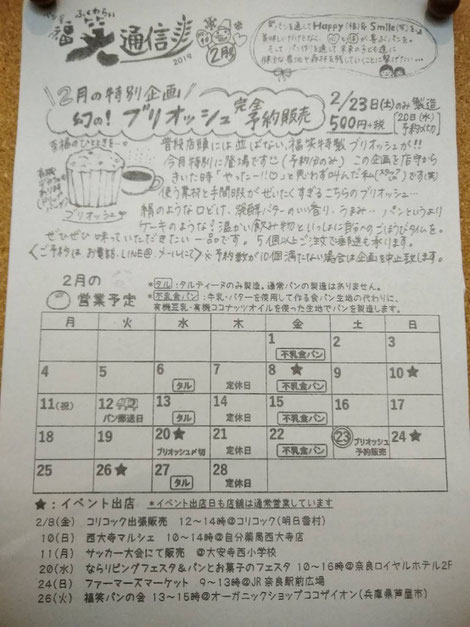 ふくわらい
福笑通信
2019
2月号
パンを通してHappy(福)&Smile(笑)を。
2月の特別企画
幻の！ブリオッシュ 完全予約販売
2/23(土)のみ製造
500円+税
20日(水)予約〆切
幸福のひととき…
ブリオッシュ
普段店頭には並ばない、福笑特製ブリオッシュが!!
今月特別に登場です☺(予約分のみ)この企画を店守から
きいた時「やったー!!
使う素材と手間暇がぜいたくすぎるこちらのブリオッシュ…
絹のような口どけ、発酵バターのいい香り、うまみ…パンというより
ケーキのような♡温かい飲み物といっしょに自分へのごほうびタイムを。
ぜひぜひ味っていただきたい一品です。5個以上ご注文で郵送も承ります。
〈ご予約は お電話、LINE@、メールにて〉※予約数が10個満たない場合は企画を中止致します。
2月の
営業予定
*タル：タルティーヌのみ製造。通常パンの製造はありません。
*不乳食パン：牛乳・バターを使用して作る食パン生地の代わりに、
有機豆乳・有機ココナッツオイルを使った生地でパンを製造します。
月 火 水 木 金 土 日
1 2 3
不乳食パン
4 5 6 7 8★ 9 10★
タル 定休日 不乳食パン
11(祝) 12 13 14 15 16 17
パン郵送日 タル 定休日 不乳食パン
18 19 20★ 21 22 23 24★
ブリオッシュ〆切 定休日 不乳食パン ブリオッシュ予約販売
25 26★ 27 28
タル 定休日
★：イベント出店 *イベント出店日も店舗は通常営業しています
2/8(金) コリコック出張販売 12～14時@コリコック(明日香村)
10(日) 西大寺マルシェ 10～14時@自分薬局西大寺店
11(月) サッカー大会にて販売 @大安寺西小学校
20(水) ならリビングフェスタ&パンとお菓子のフェスタ 10～16時@奈良ロイヤルホテル2F
24(日) ファーマーズマーケット 9～13時@JR奈良駅前広場
26(火) 福笑パンの会 13～15時@オーガニックショップココザイオン(兵庫県芦屋市)